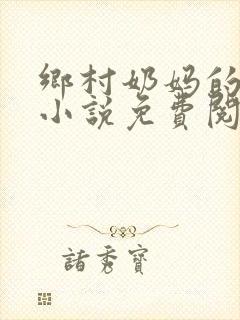 鄉村奶妈的
小説免費閱
諸秀寶